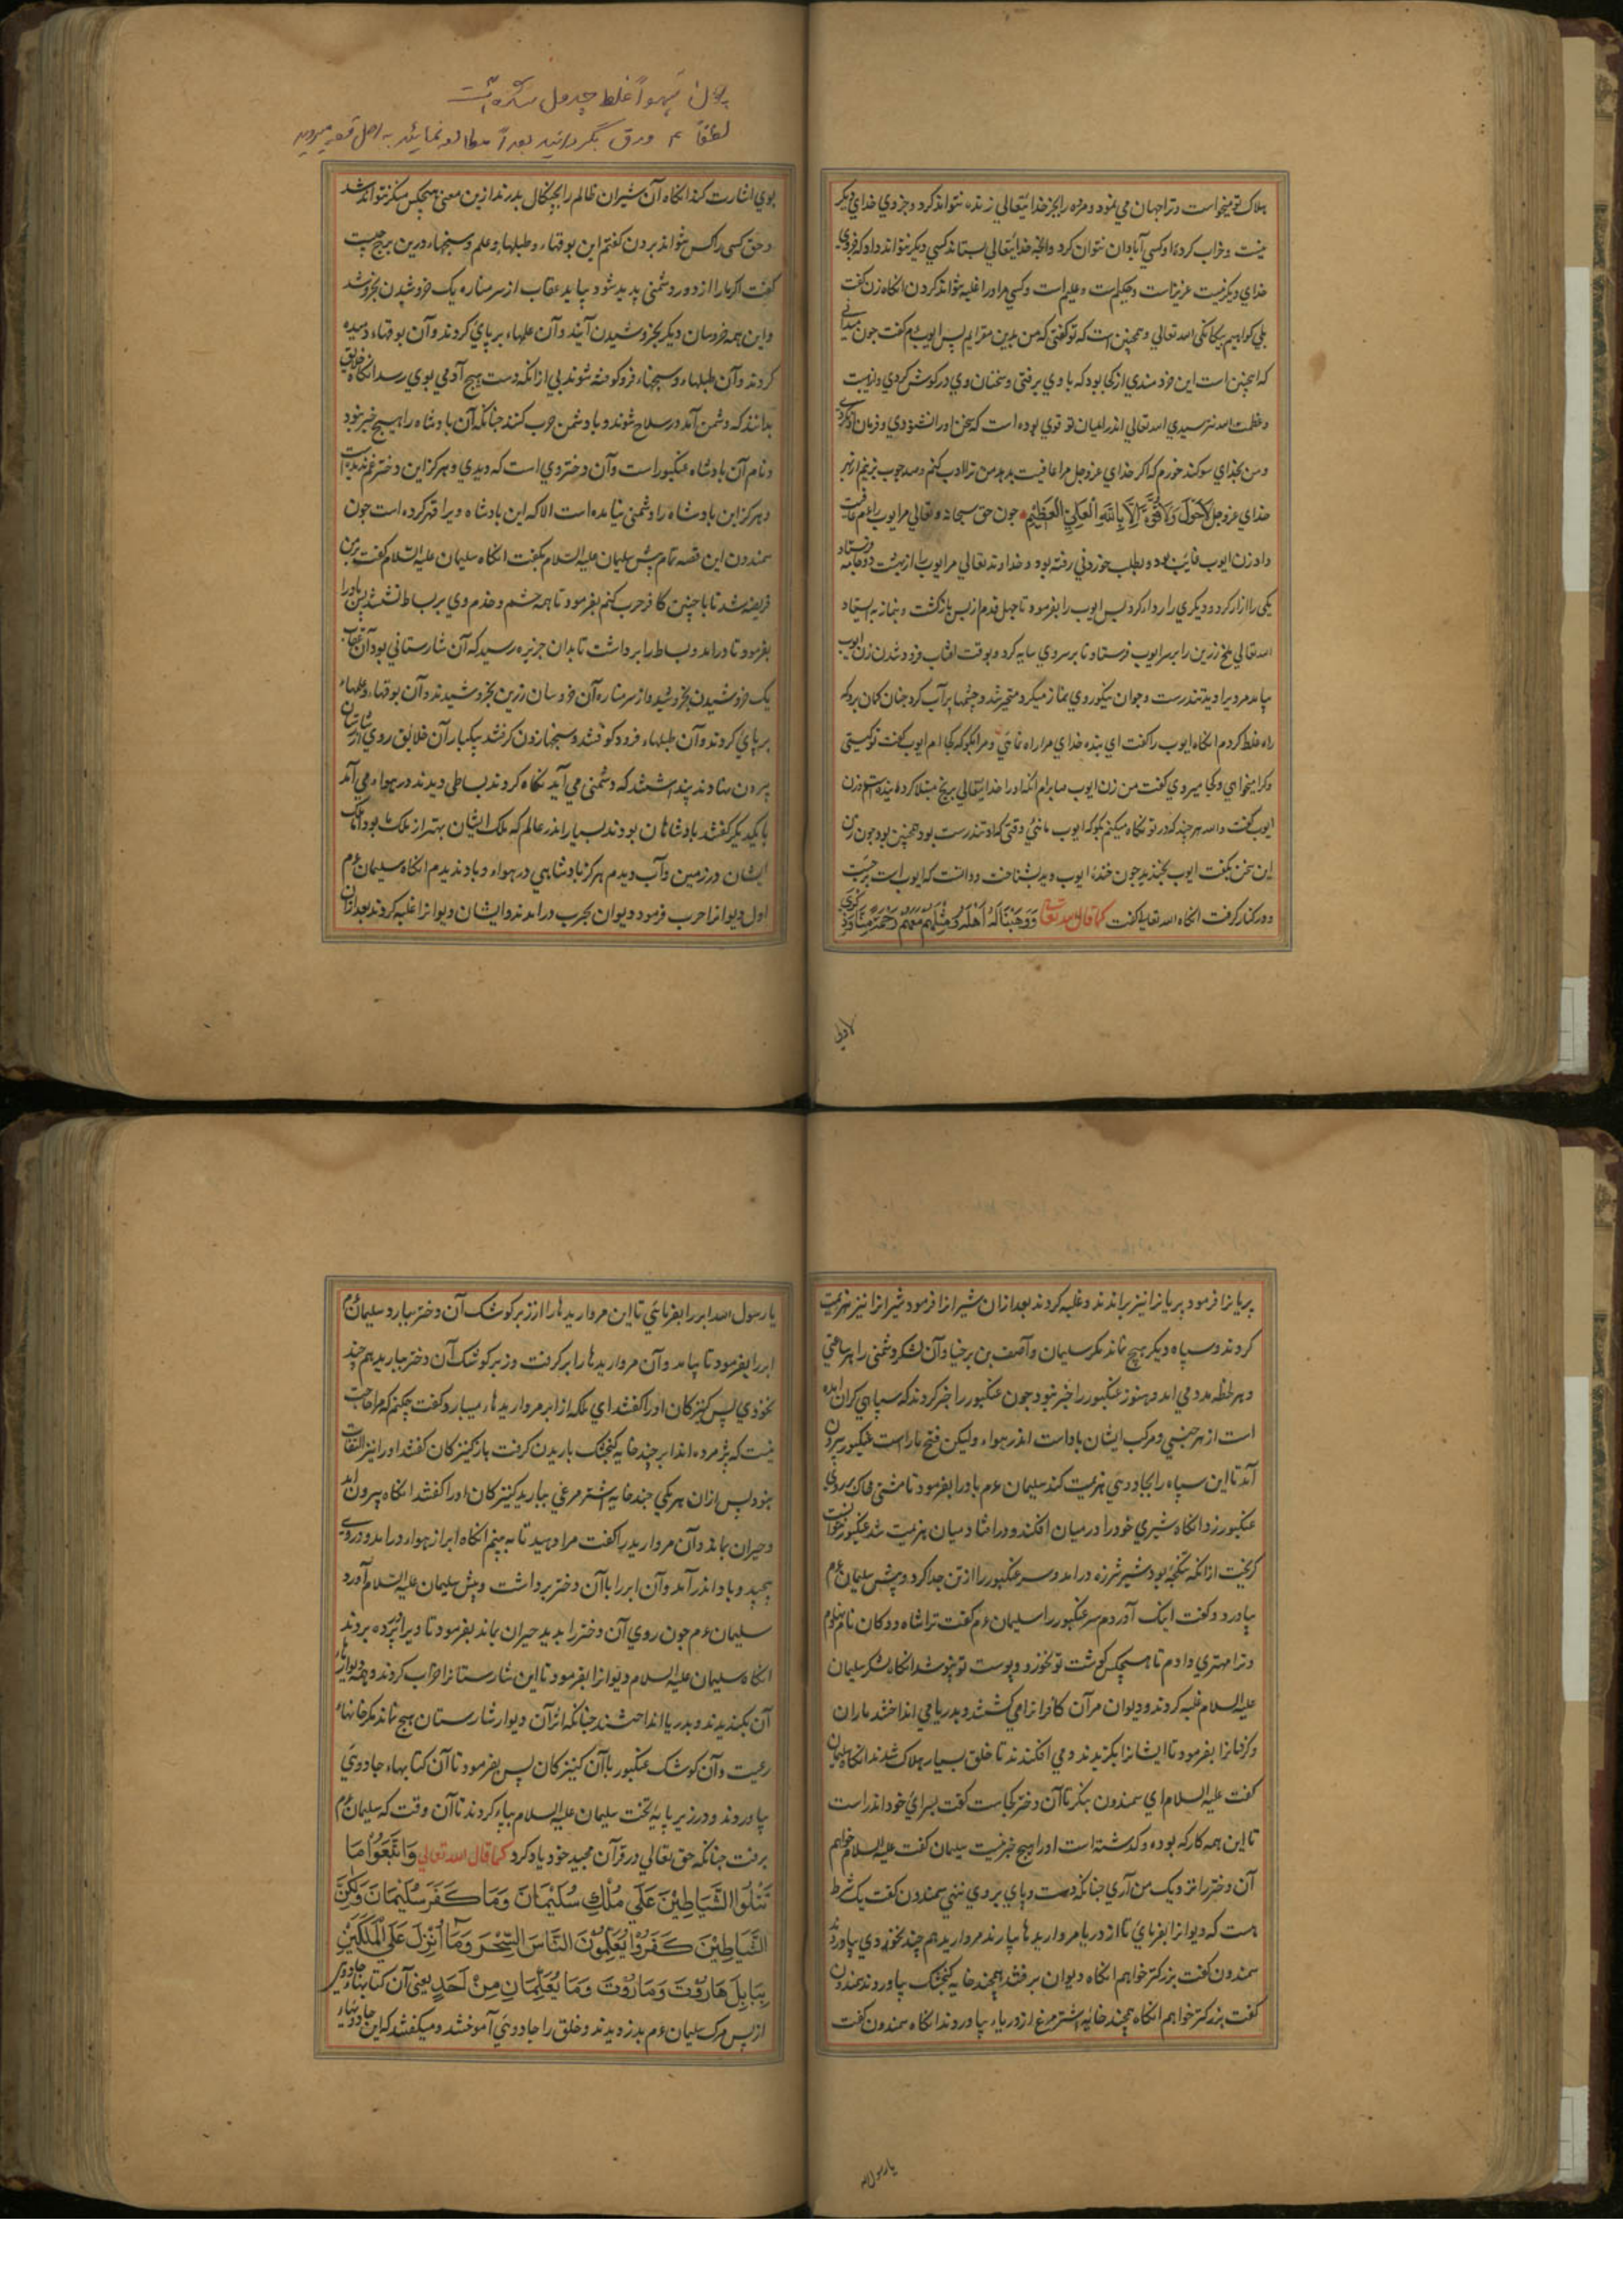 هلاک تو میخواست و تراجهان می نمود ومرده را بجز خدایتعالی زنده نتواند کرد وجز وی خدای دیگر
نیست وخراب کرده اوکسی آبادان نتوان کرد وانچه خدایتعالی بستاند کسی دیگر نتواند داد که جز وی
خدای دیگر نیست عزیز است وحکیم است وعلیم است وکسی مر او را غلبه نتواند کردن انکاه زن گفت
بلی گواهیم بیگانگی الله تعالی وهمچنین است که تو گفتی که من بدین مقرایم پس ایوب ءم گفت چون میدانی
که اینچنین است این خردمندی از کجا بود که با وی برفتی وسخنان وی در گوش کردی واز هیبت
وعظمت الله نترسیدی الله تعالی اندر میان تو قوی بوده است که سخن او را نشنودی وفرمان او نکردی
ومن بخدای سوکند خورم که اگر خدای عز وجل مرا عافیت بدهد من ترا ادب کنم وصد چوب بزنم از بهر
خدای عز وجل لَاحَوْلَ وَلَاقُوَّةَ اِلَّا بِاللّٰهِ الْعَلِيِّ الْعَظِيْمِ چون حق سبحانه وتعالی مر ایوب را ءم عافیت
داد زن ایوب غایب بود وبطلب خوردنی رفته بود وخداوند تعالی مر ایوب را از بهشت دو جامه فرستاد
یکی را ازار کرد ودیگری را رداء کرد پس ایوب را بفرمود تا چهل قدم از پس بازگشت وبنماز به ایستاد
الله تعالی ملخ زرین را بر سر ایوب فرستاد تا بر سر وی سایه کرد وبوقت افتاب فرو شدن زن ایوب
بیامد مرد برا دید تندرست وجوان نیکوروی نماز میکرد متحیر شد وچشمها پر آب کرد چنان گمان برد که
راه غلط کردم انکاه ایوب را گفت ای بنده خدای مرا راه نمائی ومرا بگو که کجا ام ایوب گفت تو کیستی
وکرا میخواهی وکجا میروی گفت من زن ایوب صابرام انکه او را خدایتعالی برنج مبتلا کرد
ایوب گفت والله هر چند که در تو نکاه میکنم بگو که ایوب مانی وقتی که او تندرست بود همچنین بود چون زن
این سخن بگفت ایوب بخندید چون خنده ایوب دید بشناخت ودانست که ایوب است برجست
ودر کنار گرفت انکاه الله تعالی گفت کما قال الله تعالی وَوَهَبْنَا لَهُ اَهْلَهُ وَمِثْلَهُمْ مَعَهُمْ رَحْمَةً مِنَّا وَذِكْرٰى
لاولی
سهواً غلط جدول شده است
لطفاً ۲ ورق بگردانید بعداً مطالعه نمائید به اصل قصه میروید
بوی اشارت کند انکاه آن شیران ظالم را بچنگال بدرند ازین معنی هیچکس منکر نتواند شد
وحق کسی را کس نتواند بردن گفتم این بوقها، وطبلها، وعلم وسنجها، درین برج چیست
گفت اگر ما را از دور دشمنی پدید شود بیاید عقاب از سر مناره یک خروشیدن بخروشد
واین همه خروسان دیگر بخروشیدن آیند وآن علمها، بر پای کردند وآن بوقها، دمیده
کردند وآن طبلها، وسنجها، فروکوفته شوند بی از انکه دست هیچ آدمی بوی رسد انکاه خلایق
بدانند که دشمن آمد در سلاح شوند وبا دشمن حرب کنند چنانکه آن پادشاه را هیچ خبر نبود
ونام آن پادشاه عنکبور است وآن دختر وی است که دیدی وهرگز این دختر غم ندیده است
وهرگز این پادشاه را دشمنی نیامده است الا که این پادشاه ویرا قهر کرده است چون
سمندون این قصه تمام پیش سلیمان علیه السلام بگفت انکاه سلیمان علیه السلام گفت بر من
فریضه شد تا با چنین کافر حرب کنم بفرمود تا همه حشم وخدم وی بر بساط نشستند پس باد را
بفرمود تا درامد وبساط را برداشت تا بدان جزیره رسید که آن شارستانی بود آن عقاب
یک خروشیدن بخروشید واز سر مناره آن خروسان زرین بخروشیدند وآن بوقها، وعلمهاء
بر پای کردند وآن طبلهاء فرود کوفتند وسنجها زدن گرفتند بیکبار آن خلائق روی از شارستان
بیرون نهادند پنداشتند که دشمنی می آید نکاه کردند بساطی دیدند در هواء می آمد
با یکدیگر گفتند پادشاهان بودند بسیار اندر عالم که ملک ایشان بهتر از ملک ما بود اما ملک
ایشان در زمین وآب ودیدم هرگز پادشاهی در هواء وباد ندیدم انکاه سلیمان ءم
اول دیوانرا حرب فرمود دیوان بحرب درامدند وایشان دیوانرا غلبه کردند بعد ازان
پریانرا فرمود پریانرا نیز براندند وغلبه کردند بعد ازان شیرانرا فرمود شیرانرا نیز هزیمت
کردند وسپاه دیگر هیچ نماند مگر سلیمان وآصف بن برخیا وآن لشکر دشمنی را هر ساعتی
وهر لحظه مدد می امد وهنوز عنکبور را خبر نبود چون عنکبور را خبر کردند که سپاهی گران امده
است از هر جنسی ومرکب ایشان باد است اندر هواء ولیکن فتح ما راست عنکبور بیرون
آمد تا این سپاه را بجادوئی هزیمت کند سلیمان ءم باد را بفرمود تا مشتی خاک بر روی
عنکبور زد انکاه شیری خود را در میان افکند ودر افتاد میان هزیمت شد عنکبور خواست
گریخت از انکه شکنجه بود شیر شرزه درامد وسر عنکبور را از تن جدا کرد وپیش سلیمان ءم
بیاورد وگفت اینک آوردم سر عنکبور را سلیمان ءم گفت ترا شاه ددگان نام نهادم
وترا مهتری دادم تا هیچکس گوشت تو نخورد وپوست تو نپوشد انکاه لشکر سلیمان
علیه السلام غلبه کردند ودیوان مر آن کافرانرا می کشتند وبدریا می انداختند ماران
وکژدمانرا بفرمود تا ایشانرا بگزیدند ومی افکندند تا خلق بسیار هلاک شدند انکاه سلیمان
گفت علیه السلام ای سمندون بنگر تا آن دختر کجاست گفت بسرای خود اندر است
تا این همه کار که بوده وگذشته است او را هیچ خبر نیست سلیمان گفت علیه السلام خواهم
آن دختر را نزدیک من آری چنانکه دست وپای بر وی ننهی سمندون گفت یک شرط
هست که دیوانرا بفرمای تا از دریا مرواریدها بیارند مروارید هم چند نخودی بیاورند
سمندون گفت بزرگتر خواهم انکاه دیوان برفتند همچند خایه گنجشک بیاوردند سمندون
گفت بزرگتر خواهم انکاه همچند خائیه اشتر مرغ از دریا، بیاوردند انکاه سمندون گفت
یا رسول الله
یا رسول الله ابر را بفرمائی تا این مرواریدها را از زبر کوشک آن دختر ببارد سلیمان ءم
ابر را بفرمود تا بیامد وآن مرواریدها را برگرفت وزبر کوشک آن دختر بباریدهم چند
نخودی پس کنیزکان او را گفتند ای ملکه از ابر مرواریدها، میبارد گفت چکنم که مرا حاجت
نیست که پژمرده اند ابر چند خایه گنجشک باریدن گرفت باز کنیزکان گفتند او را نیز التفات
نبود پس ازان هر یکی چند خایه اشتر مرغی ببارید کنیزکان او را گفتند انکاه بیرون امد
وحیران بماند وآن مروارید را گفت مرا دهید تا به بینم انکاه ابر از هواء درامد ودر وی
پیچید وباد اندر آمد وآن ابر را با آن دختر برداشت وپیش سلیمان علیه السلام آورد
سلیمان ءم چون روی آن دختر را بدید حیران بماند بفرمود تا ویرا در پرده بردند
انکاه سلیمان علیه السلام دیوانرا بفرمود تا این شارستانرا خراب کردند وهمه دیوارهاء
آن بکندیدند وبدریا انداختند چنانکه از آن دیوار شارستان هیچ نماند مگر خانهاء
رعیت وآن کوشک عنکبور با آن کنیزکان پس بفرمود تا آن کتابهاء جادوئی
بیاوردند ودر زیر پایه تخت سلیمان علیه السلام بپاء کردند تا آن وقت که سلیمان ءم
برفت چنانکه حق تعالی در قرآن مجید خود یاد کرد کما قال الله تعالی وَاتَّبَعُوْا مَا
تَتْلُوا الشَّيَاطِيْنَ عَلٰي مُلْكِ سُلَيْمَانَ وَمَا كَفَرَ سُلَيْمَانَ وَلٰكِنَّ
الشَّيَاطِيْنَ كَفَرُوْا يُعَلِّمُوْنَ النَّاسَ السِّحْرَ وَمَا اُنْزِلَ عَلَي الْمَلَكَيْنِ
بِبَابِلَ هَارُوْتَ وَمَارُوْتَ وَمَا يُعَلِّمَانِ مِنْ اَحَدٍ یعنی آن کتابها، جادوی
از پس مرک سلیمان ءم بدزدیدند وخلق را جادوئی آموختند ومیگفتند که این جادوئیهاء